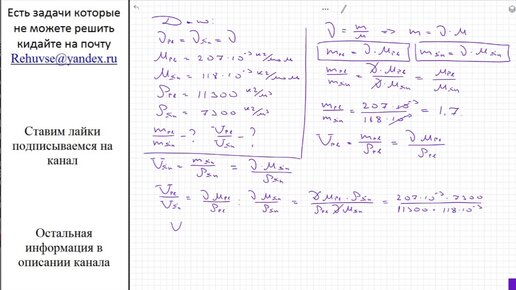 Есть задачи которые
не можете решить
кидайте на почту
Rehuvse@yandex.ru
Ставим лайки
подписываемся на
канал
Остальная
информация в
описании канала
Дано:
ν_Pb = ν_Sn = ν
μ_Pb = 207·10⁻³ кг/моль
μ_Sn = 118·10⁻³ кг/моль
ρ_Pb = 11300 кг/м³
ρ_Sn = 7300 кг/м³
m_Pb/m_Sn - ? V_Pb/V_Sn - ?
V_Sn = m_Sn/ρ_Sn = ν·μ_Sn/ρ_Sn
ν = m/μ => m = ν·μ
m_Pb = ν·μ_Pb m_Sn = ν·μ_Sn
m_Pb/m_Sn = ν·μ_Pb/ν·μ_Sn = μ_Pb/μ_Sn
m_Pb/m_Sn = 207·10⁻³/118·10⁻³ = 1,7
V_Pb = m_Pb/ρ_Pb = ν·μ_Pb/ρ_Pb
V_Pb/V_Sn = ν·μ_Pb/ρ_Pb : ν·μ_Sn/ρ_Sn = ν·μ_Pb·ρ_Sn/ρ_Pb·ν·μ_Sn = 207·10⁻³·7300/11300·118·10⁻³
V